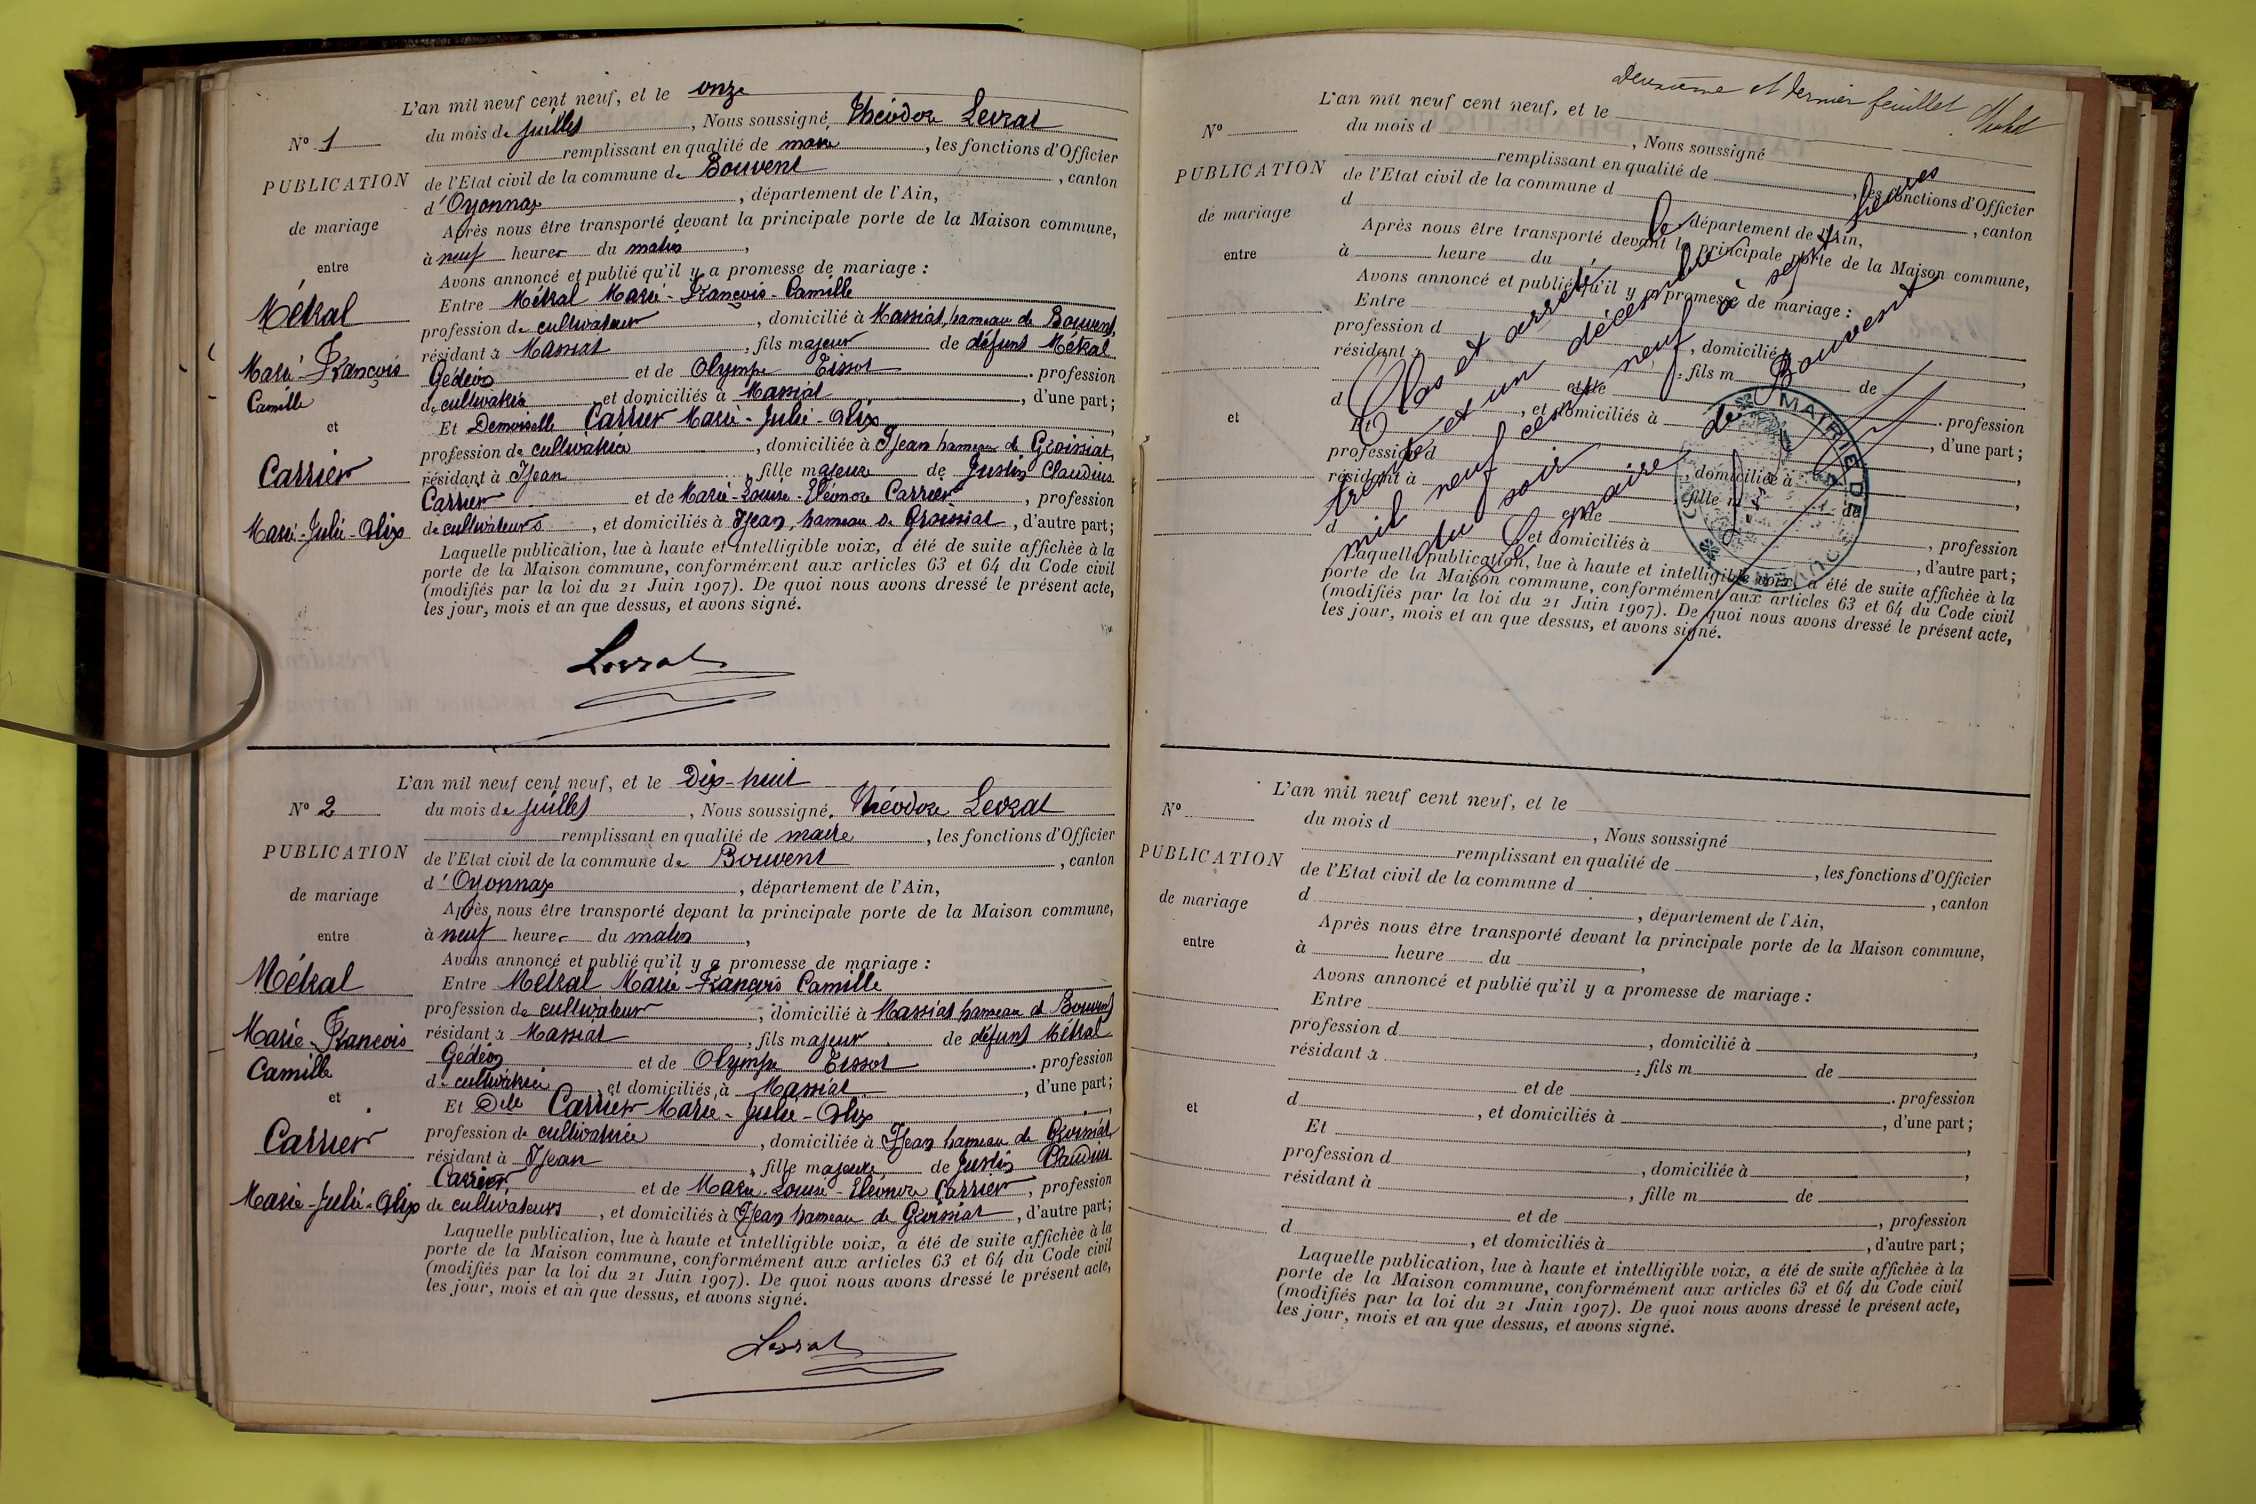 L'an mil neuf cent neuf, et le onze
N° 1
du mois de juillet, Nous soussigné, Théodore Levrat
remplissant en qualité de maire, les fonctions d'Officier
PUBLICATION
de l'Etat civil de la commune de Bouvent, canton
d'Oyonnax, département de l'Ain,
de mariage
Après nous être transporté devant la principale porte de la Maison commune,
à neuf heures du matin,
entre
Avons annoncé et publié qu'il y a promesse de mariage :
Métral
Entre Métral Marie-François-Camille
profession de cultivateur, domicilié à Massiat, hameau de Bouvent,
résidant à Massiat, fils majeur de défunt Métral
Marie-François
Gédéon et de Olympe Tissot. profession
Camille
de cultivatrice et domiciliés à Massiat, d'une part;
et
Et Demoiselle Carrier Marie-Julie-Alix
profession de cultivatrice, domiciliée à Ijean hameau de Groissiat,
Carrier
résidant à Ijean, fille majeure de Justin Claudius
Carrier et de Marie-Louise-Eléonore Carrier, profession
Marie-Julie-Alix
de cultivateurs, et domiciliés à Ijean, hameau de Groissiat, d'autre part;
Laquelle publication, lue à haute et intelligible voix, a été de suite affichée à la
porte de la Maison commune, conformément aux articles 63 et 64 du Code civil
(modifiés par la loi du 21 Juin 1907). De quoi nous avons dressé le présent acte,
les jour, mois et an que dessus, et avons signé.
Levrat
L'an mil neuf cent neuf, et le Dix-huit
N° 2
du mois de juillet, Nous soussigné, Théodore Levrat
remplissant en qualité de maire, les fonctions d'Officier
PUBLICATION
de l'Etat civil de la commune de Bouvent, canton
d'Oyonnax, département de l'Ain,
de mariage
Après nous être transporté devant la principale porte de la Maison commune,
entre
à neuf heures du matin,
Avons annoncé et publié qu'il y a promesse de mariage :
Métral
Entre Métral Marie-François Camille
profession de cultivateur, domicilié à Massiat hameau de Bouvent
Marie-François
résidant à Massiat, fils majeur de défunt Métral
Camille
Gédéon et de Olympe Tissot. profession
de cultivatrice et domiciliés, à Massiat, d'une part;
et
Et Delle Carrier Marie-Julie-Alix
Carrier
profession de cultivatrice, domiciliée à Ijean hameau de Groissiat
résidant à Ijean, fille majeure de Justin Claudius
Carrier et de Marie-Louise-Eléonore Carrier, profession
Marie-Julie-Alix
de cultivateurs, et domiciliés à Ijean hameau de Groissiat, d'autre part;
Laquelle publication, lue à haute et intelligible voix, a été de suite affichée à la
porte de la Maison commune, conformément aux articles 63 et 64 du Code civil
(modifiés par la loi du 21 Juin 1907). De quoi nous avons dressé le présent acte,
les jour, mois et an que dessus, et avons signé.
Levrat
Deuxième et dernier feuillet
L'an mil neuf cent neuf, et le
N°
du mois d, Nous soussigné
remplissant en qualité de, les fonctions d'Officier
PUBLICATION
de l'Etat civil de la commune d, canton
d, département de l'Ain,
de mariage
Après nous être transporté devant la principale porte de la Maison commune,
entre
à heure du,
Avons annoncé et publié qu'il y a promesse de mariage :
Entre
profession d, domicilié à,
résidant à, fils m de
et de. profession
d, et domiciliés à, d'une part;
et
Et,
profession d, domiciliée à,
résidant à, fille m de
et de, profession
d, et domiciliés à, d'autre part;
Laquelle publication, lue à haute et intelligible voix, a été de suite affichée à la
porte de la Maison commune, conformément aux articles 63 et 64 du Code civil
(modifiés par la loi du 21 Juin 1907). De quoi nous avons dressé le présent acte,
les jour, mois et an que dessus, et avons signé.
Clos et arrêté le
trente et un décembre
mil neuf cent neuf à sept heures
du soir
Le maire de Bouvent
MAIRIE DE
L'an mil neuf cent neuf, et le
N°
du mois d, Nous soussigné
remplissant en qualité de, les fonctions d'Officier
PUBLICATION
de l'Etat civil de la commune d, canton
d, département de l'Ain,
de mariage
Après nous être transporté devant la principale porte de la Maison commune,
entre
à heure du,
Avons annoncé et publié qu'il y a promesse de mariage :
Entre
profession d, domicilié à,
résidant à, fils m de
et de. profession
et
d, et domiciliés à, d'une part;
Et,
profession d, domiciliée à,
résidant à, fille m de
et de, profession
d, et domiciliés à, d'autre part;
Laquelle publication, lue à haute et intelligible voix, a été de suite affichée à la
porte de la Maison commune, conformément aux articles 63 et 64 du Code civil
(modifiés par la loi du 21 Juin 1907). De quoi nous avons dressé le présent acte,
les jour, mois et an que dessus, et avons signé.